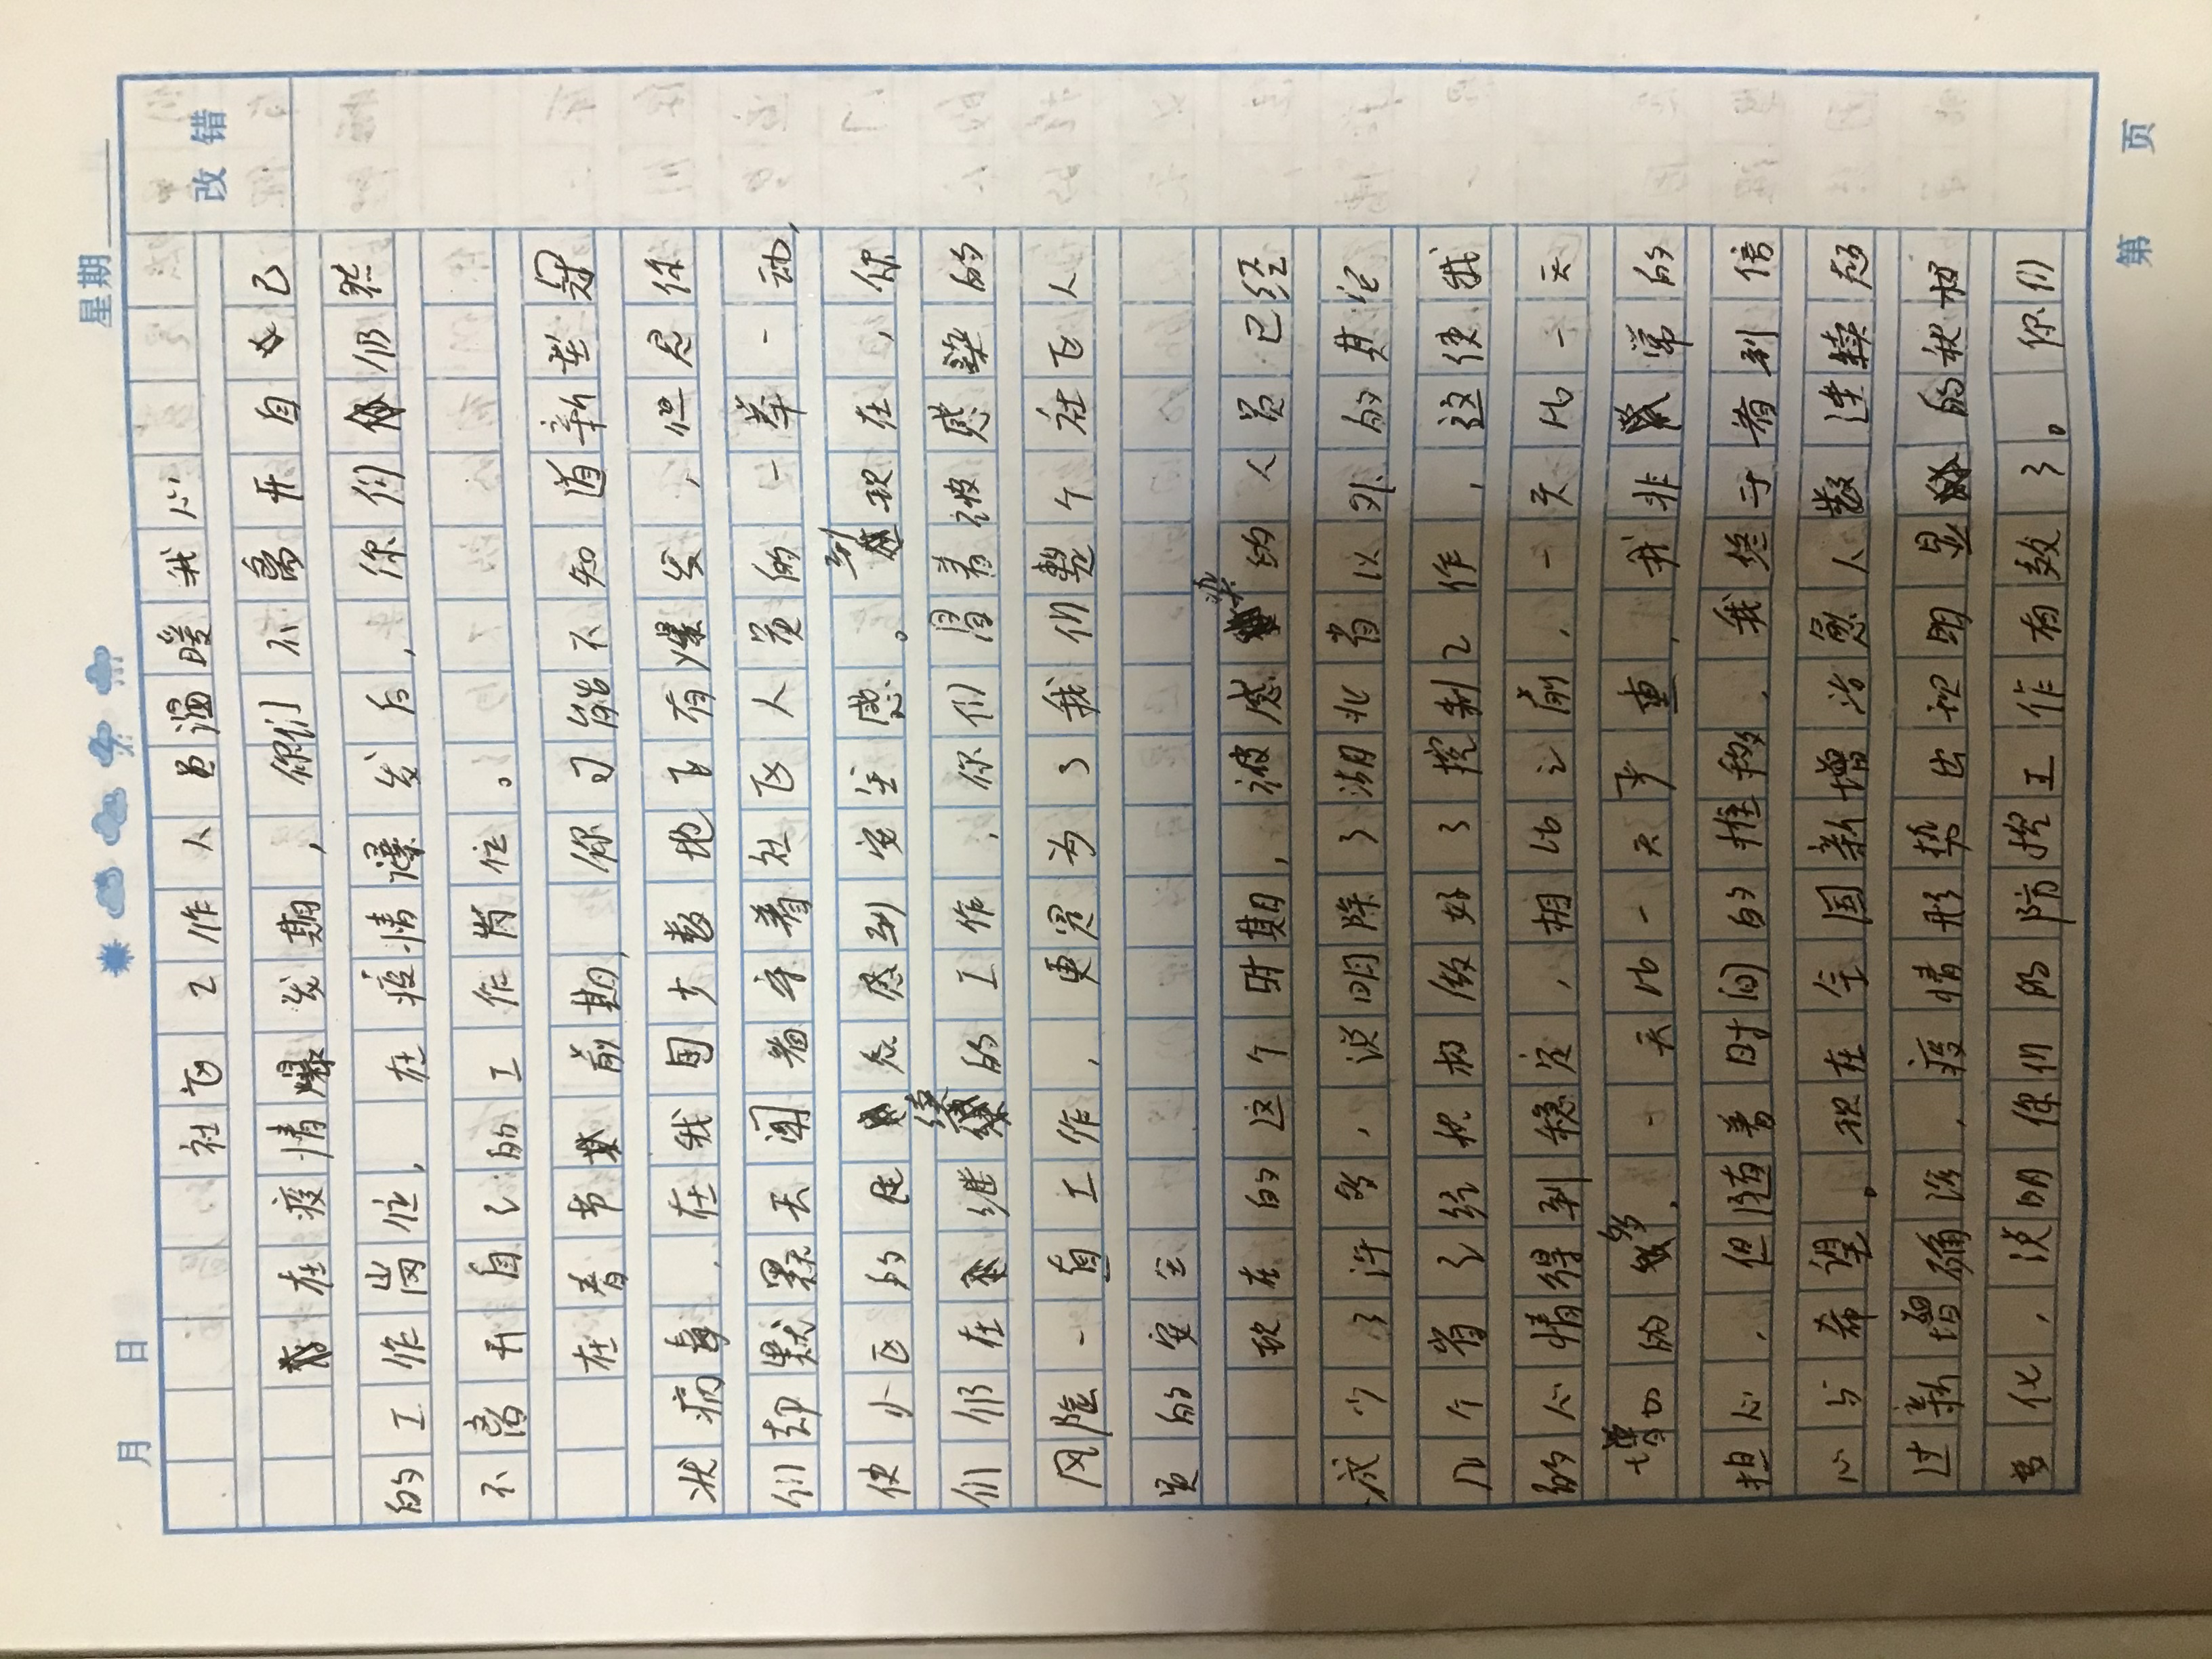 月 日 星期
改错
社区工作人员温暖我心
在疫情爆发期,你们不离开自己
的工作岗位,在疫情爆发后,你们仍然
不离开自己的工作岗位。
在春节前期,你可能不知道新型冠
状病毒,在我国大数地区有爆发,但是你
们却默默天闻着辛着社区人员的一举一动,
使小区的住 感到安全感。到现在,你
们仍在继续的工作,你们冒着被感染的
风险一直工作,更是为了我们整个社区人
员的安全
现在的这个时期,被感染的人员已经
减少了许多,说明除了湖北省以外的其它
几个省已经把控做好了控制工作,这使我
的心情得到稳定,相比之前,一天比一天
增加的多,一天比一天严重,我非常的
担心,但随着时间的推移,我终于看到信
心与希望。现在全国新增治愈人数连续超
过新增确诊,疫情形势出现明显的积极
变化,说明你们的防控工作有效了。你们
第 页